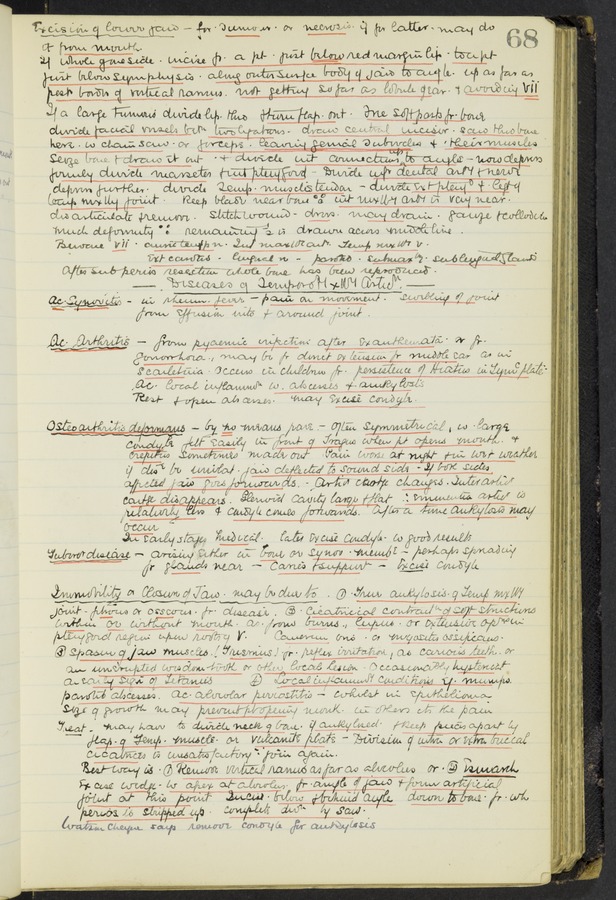 68
Excision of lower jaw - for tumour or necrosis if for latter may do
it from mouth
If whole of one side. incise fr. a pt. just below red margin lip to a pt
just below symphysis. along outer surface body of jaw to angle. up as far as
post border of vertical ramus. not getting so far as lobule of ear & avoiding VII
If a large tumour divide lip thro & turn flap out. Free soft parts fr. bone
divide facial vessels betw. two ligatures. draw central incisor. saw thro bone
here. w chain saw or forceps. leaving genial tubercles & their muscles
Seize bone & draw it out & divide int connections up to angle - now depress
firmly divide masseter & int pterygoid - Divide inf dental art & nerve
depress further. divide temp. muscle tendon - divide ext pteryg & ligts of
temp mxlly joint. Keep blade near bone int mxlly art is very near.
disarticulate & remove. Stitch wound - dress. may drain. gauze & collodion
Much deformity remaining ½ is drawn across middle line.
Beware VII. auriculotemp n. Int max art. Temp mx v.
Ext carotid - lingual n - parotid submax & sublingual glands
After sub perios resection whole bone has been reproduced.
Diseases of Temporo Mx Artic
Ac. Synovitis - in rheum. fever - pain on movement. swelling of joint
from effusion into & around joint.
Ac. Arthritis - from pyaemic infection after exanthemata or fr.
gonorrhoea, may be fr direct extension fr middle ear as in
scarlatina occurs in children fr. persistence of Hiatus in Tymp plate
Ac. local inflammt w. abscesses & ankylosis
Rest & open abscesses. may excise condyle.
Osteoarthritis deformans - by no means rare - often symmetrical, w. large
condyle felt easily in front of tragus when pt opens mouth. &
crepitus sometimes made out. Pain worse at night & in wet weather
if dis be unilat. jaw deflected to sound side - If both sides
affected jaw goes forwards. Artic cartge changes. Interartic
cartge disappears. Glenoid cavity large & flat eminentia artic is
relatively less & condyle comes forwards. After a time ankylosis may
occur
In early stages medical. later excise condyle w good results
Tuberc disease - arising either in bone or synov. memb - perhaps spreading
fr glands near - caries & suppurt - Excise condyle
Immobility or Closure of Jaw. may be due to. ① True ankylosis of Temp mxlly
joint - fibrous or osseous fr disease. ② cicatricial contract of soft structures
within or without mouth as from burns, lupus or extensive optn in
pterygoid region upon ③ Spasm of jaw muscles (Trismus) fr. reflex irritation, as carious teeth. or
an unerupted wisdom tooth or other local lesion. occasionally hysterical
or early sign of Tetanus ④ Local inflammt conditions eg. mumps.
parotid abscesses. ac. alveolar periostitis - whilst in epithelioma
size of growth may prevent opening mouth in others its the pain
Treat - may have to divide neck of bone if ankylosed & keep pieces apart by
flap of Temp. muscle or vulcanite plate - Division of intra or extra buccal
cicatrices is unsatisfactory join again.
Best way is ① Remove vertical ramus as far as alveolus or ② Esmarch
Excise wedge w apex at alveolus fr angle of jaw & form artificial
joint at this point Incis below & behind angle down to bone fr. wh
perios is stripped up. complete div by saw.
Watson Cheyne says remove condyle for ankylosis